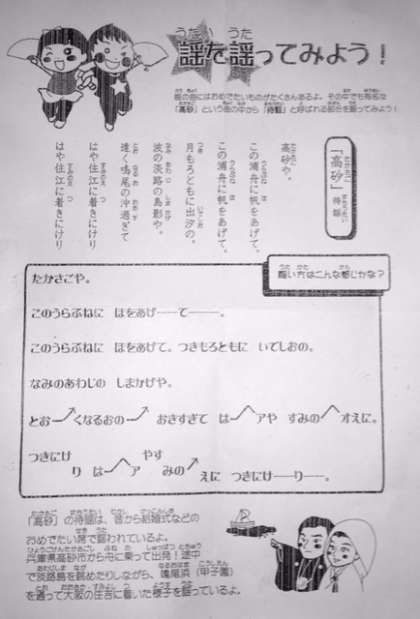 謡を謡ってみよう
能の曲にはおめでたいものがたくさんあるよ。その中でも有名な
「高砂」という曲の中から「待謡」と呼ばれる部分を謡ってみよう！
「高砂」待謡
高砂や。
この浦舟に帆をあげて。
この浦舟に帆をあげて。
月もろともに出汐の。
波の淡路の島影や。
遠く鳴尾の沖過ぎて
はや住江に着きにけり
はや住江に着きにけり
謡い方はこんな感じかな？
たかさごや。
このうらぶねに ほをあげ――て――。
このうらぶねに ほをあげて。つきもろともに いでしおの。
なみのあわじの しまかげや。
とお くなるおの おきすぎて は アや すみの オえに。
つきにけり は ア やすみの えに つきにけ――り――。
「高砂」の待謡は、昔から結婚式などの
おめでたい席で謡われているよ。
兵庫県高砂市から舟に乗って出発！途中
で淡路島を眺めたりしながら、鳴尾浜（甲子園）
を通って大阪の住吉に着いた様子を謡っているよ。